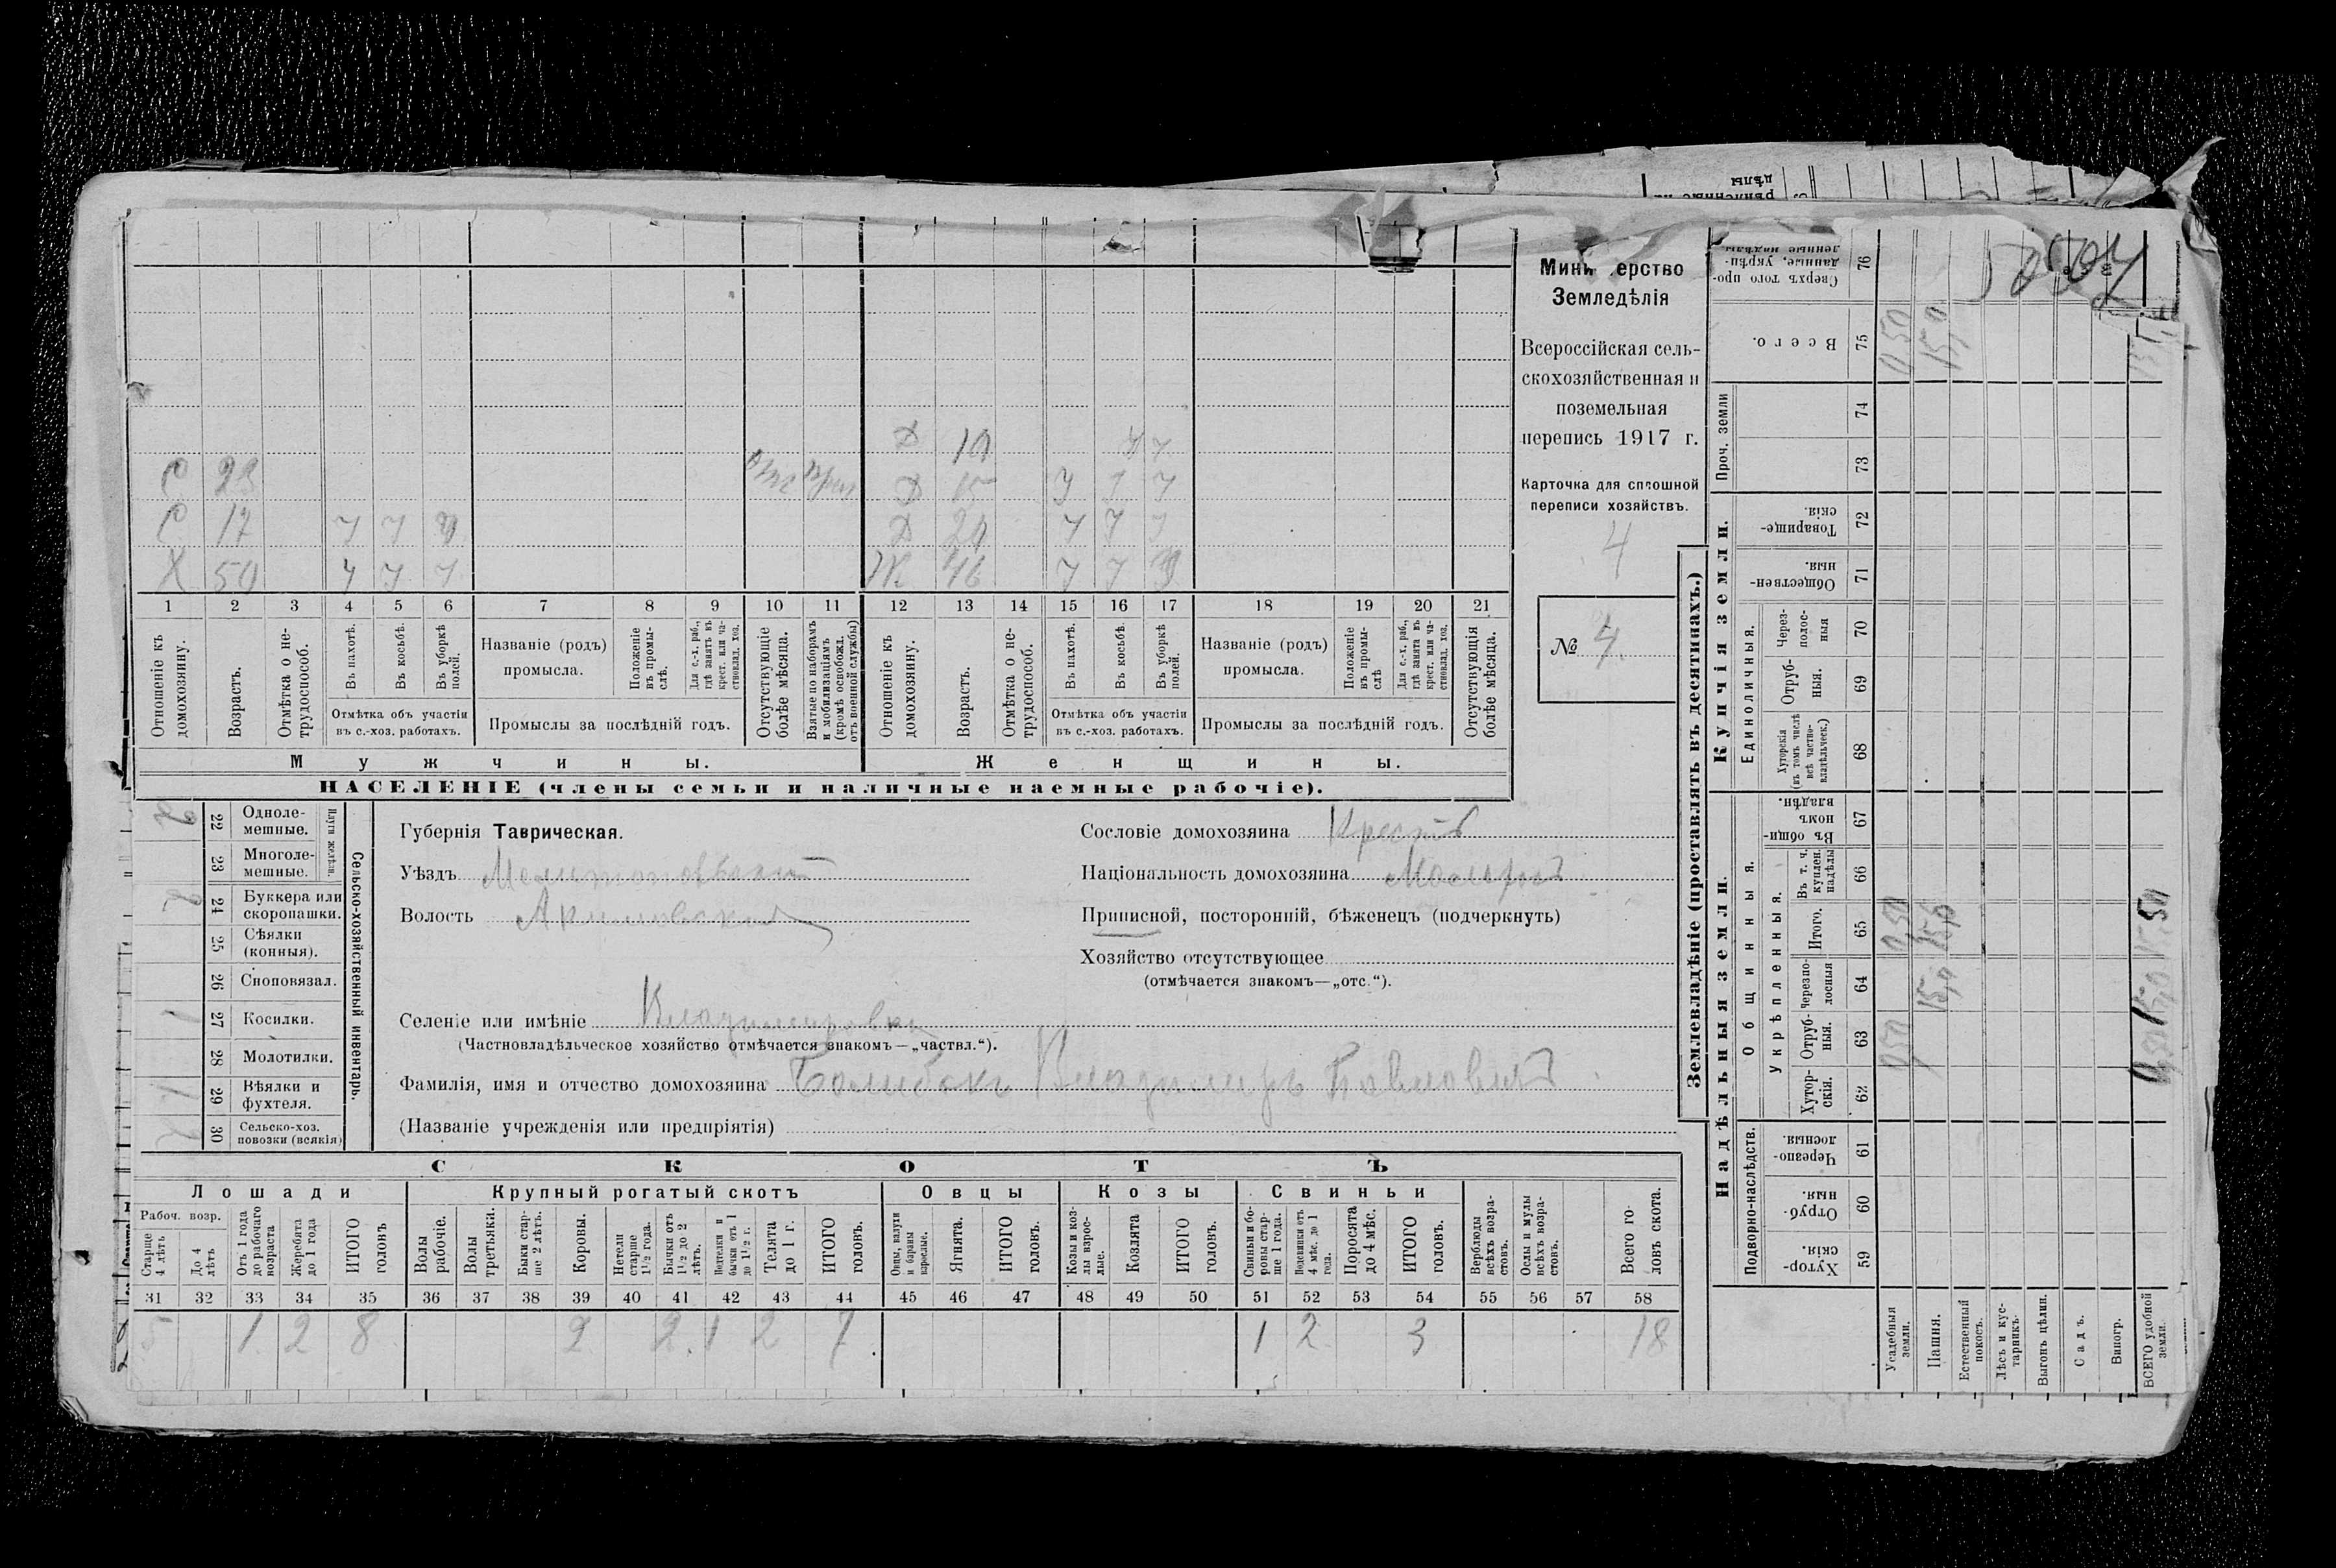 Х 50 4 7 7 Ж 46 7 7
С 17 7 7 Д 20 7 7
С 23 Д 15 7 7
Д 10 7
1 2 3 4 5 6 7 8 9 10 11 12 13 14 15 16 17 18 19 20 21
Отношеніе къ домохозяину.
Возрастъ.
Отмѣтка о не-
трудоспособ.
Въ пахотѣ.
Въ косьбѣ.
Въ уборкѣ
полей.
Отмѣтка объ участіи
въ с.-хоз. работахъ.
Названіе (родъ)
промысла.
Положеніе
въ промы-
слѣ.
Для с.-х. раб.,
гдѣ занятъ въ
крест. или ча-
стновлад. хоз.
Промыслы за послѣдній годъ.
Отсутствующіе
болѣе мѣсяца.
Взятые по наборамъ
и мобилизаціямъ
(кромѣ освобожд.
отъ военной службы)
Отношеніе къ
домохозяину.
Возрастъ.
Отмѣтка о не-
трудоспособ.
Въ пахотѣ.
Въ косьбѣ.
Въ уборкѣ
полей.
Отмѣтка объ участіи
въ с.-хоз. работахъ.
Названіе (родъ)
промысла.
Положеніе
въ промы-
слѣ
Для с.-х. раб.,
гдѣ занята въ
крест. или ча-
стновлад. хоз.
Промыслы за послѣдній годъ.
Отсутствующія
болѣе мѣсяца.
Мужчины.
Женщины.
НАСЕЛЕНІЕ (члены семьи и наличные наемные рабочіе).
Земледѣлія
Всероссійская сель-
скохозяйственная и
поземельная
перепись 1917 г.
Карточка для сплошной
переписи хозяйствъ.
4
№ 4.
22 Одноле-
мешные.
23 Многоле-
мешные.
Плуги желѣзн.
24 Буккера или
скоропашки.
25 Сѣялки
(конныя).
26 Сноповязал.
27 Косилки. 1
28 Молотилки.
29 Вѣялки и
фухтеля. 1
30 Сельско-хоз.
повозки (всякія)
Сельско-хозяйственный инвентарь.
Губернія Таврическая.
Уѣздъ Мелитопольскій
Волость Акимовская
Сословіе домохозяина Крест
Національность домохозяина Малорос
Приписной, посторонній, бѣженецъ (подчеркнуть)
Хозяйство отсутствующее
(отмѣчается знакомъ—„отс.“).
Селеніе или имѣніе Владимировка
(Частновладѣльческое хозяйство отмѣчается знакомъ—„частвл.“).
Фамилія, имя и отчество домохозяина Владимиръ Павловичъ
(Названіе учрежденія или предпріятія)
СКОТЪ
Лошади
Крупный рогатый скотъ
Овцы
Козы
Свиньи
Рабоч. возр.
Старше
4 лѣтъ
До 4
лѣтъ
Отъ 1 года
до рабочаго
возраста
Жеребята
до 1 года
ИТОГО
головъ
Волы
рабочіе.
Волы
третьяки.
Быки стар-
ше 2 лѣтъ.
Коровы.
Нетели
старше
1½ года.
Бычки отъ
1½ до 2
лѣтъ.
Подтелки и
бычки отъ 1
до 1½ г.
Телята
до 1 г.
ИТОГО
головъ.
Овцы, валухи
и бараны
взрослые.
Ягнята.
ИТОГО
головъ.
Козы и коз-
лы взрос-
лые.
Козлята
ИТОГО
головъ.
Свиньи и бо-
ровы стар-
ше 1 года.
Подсвинки отъ
4 мѣс. до 1
года.
Поросята
до 4 мѣс.
ИТОГО
головъ.
Верблюды
всѣхъ возра-
стовъ.
Ослы и мулы
всѣхъ возра-
стовъ.
Всего го-
ловъ скота.
31 32 33 34 35 36 37 38 39 40 41 42 43 44 45 46 47 48 49 50 51 52 53 54 55 56 57 58
5 1 2 8 2 2 1 2 7 1 2 3 18
Землевладѣніе (проставлять въ десятинахъ.)
Надѣльныя земли.
Купчія земли.
Проч. земли
Подворно-наслѣдств.
Общинныя.
Укрѣпленныя.
Единоличныя.
Хутор-
скія.
59
Отруб-
ныя.
60
Черезпо-
лосныя.
61
Хутор-
скія.
62
Отруб-
ныя.
63
Черезпо-
лосныя
64
Итого.
65
Въ т. ч.
куплен.
надѣлы
66
Въ общи-
номъ
владѣн.
67
Хуторскія
(въ томъ числѣ
всѣ частно-
владѣльческ.)
68
Отруб-
ныя.
69
Через-
полос-
ныя
70
Обществен-
ныя.
71
Товарище-
скія.
72
73
74
Всего.
75
Сверхъ того про-
данные, укрѣп-
ленные надѣлы
76
Усадебныя
земли.
0,50 0,50 0,50
Пашня.
15,0 15,0 15,0
Естественный
покосъ.
Лѣсъ и кус-
тарникъ.
Выгонъ цѣлин.
Садъ.
Виногр.
ВСЕГО удобной
земли.